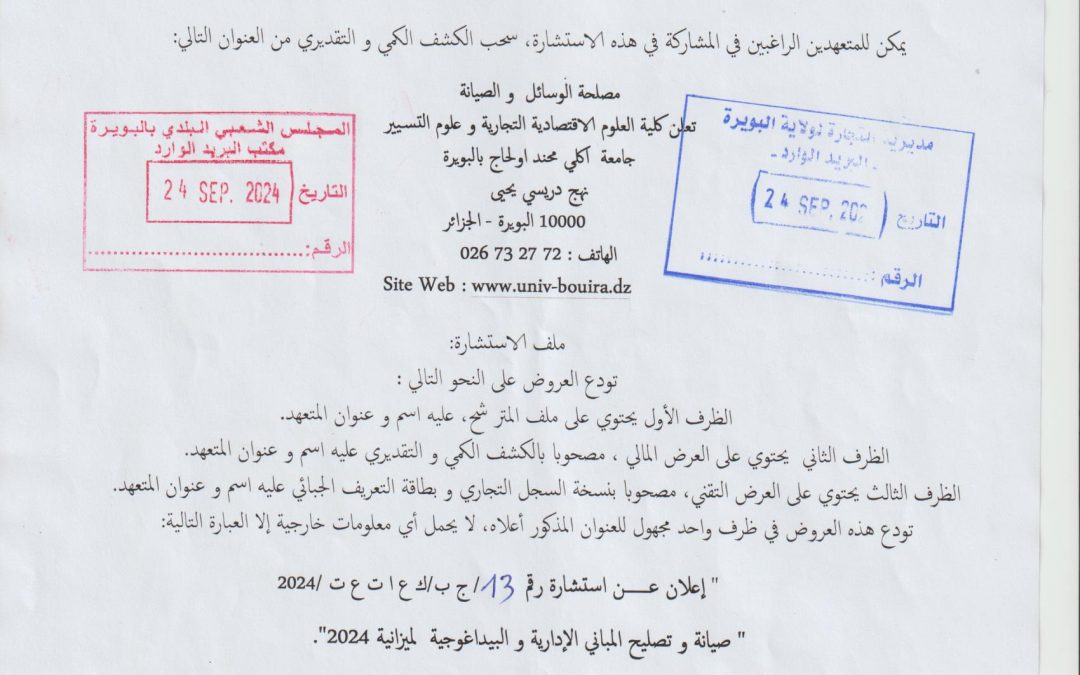 يمكن للمتعهدين الراغبين في المشاركة في هذه الاستشارة، سحب الكشف الكمي و التقديري من العنوان التالي:
مصلحة الوسائل و الصيانة
تعلن كلية العلوم الاقتصادية التجارية و علوم التسيير
جامعة اكلي محند اولحاج بالبويرة
نهج دريسي يحيى
10000 البويرة - الجزائر
الهاتف : 72 27 73 026
Site Web : www.univ-bouira.dz
المجلس الشعبي البلدي بالبويرة
مكتب البريد الوارد
التاريخ 24 SEP. 2024
الرقم:
مديرية التجارة لولاية البويرة
- البريد الوارد -
التاريخ 24 SEP. 202
الرقم :
ملف الاستشارة:
تودع العروض على النحو التالي :
الظرف الأول يحتوي على ملف المتر شح، عليه اسم و عنوان المتعهد.
الظرف الثاني يحتوي على العرض المالي ، مصحوبا بالكشف الكمي و التقديري عليه اسم و عنوان المتعهد.
الظرف الثالث يحتوي على العرض التقني، مصحوبا بنسخة السجل التجاري و بطاقة التعريف الجبائي عليه اسم و عنوان المتعهد.
تودع هذه العروض في ظرف واحد مجهول للعنوان المذكور أعلاه، لا يحمل أي معلومات خارجية إلا العبارة التالية:
" إعلان عـــن استشارة رقم 13/ ج ب/ك ع ا ت ع ت /2024
" صيانة و تصليح المباني الإدارية و البيداغوجية لميزانية 2024".